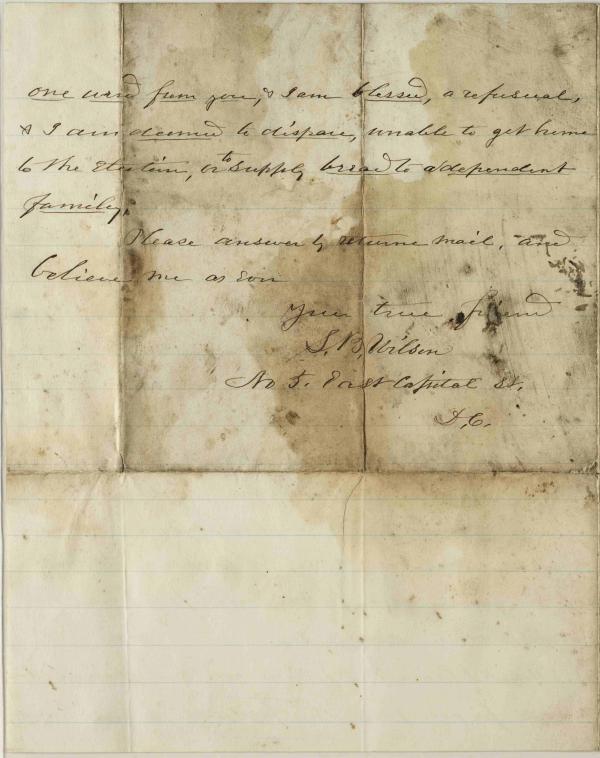 one word from you, & I am blessed, a refusual,
& I am deemed to dispare, unable to get home
to the Election, or to supply bread to a dependent
family.
Please answer by returne mail, and
believe me as ever
Your true friend
S. B. Wilson
No 5. East Capital St.
D.C.